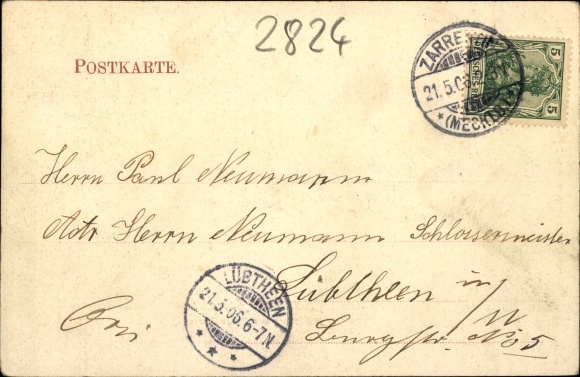 2824
POSTKARTE.
ZARRENTIN
21.5.06
* (MECKLB) *
5
5
Herrn Paul Neumann
Herrn Neumann Schlossermeister
Lübtheen i/M
No 5
LÜBTHEEN
21.5.06.6-7N.
* * *